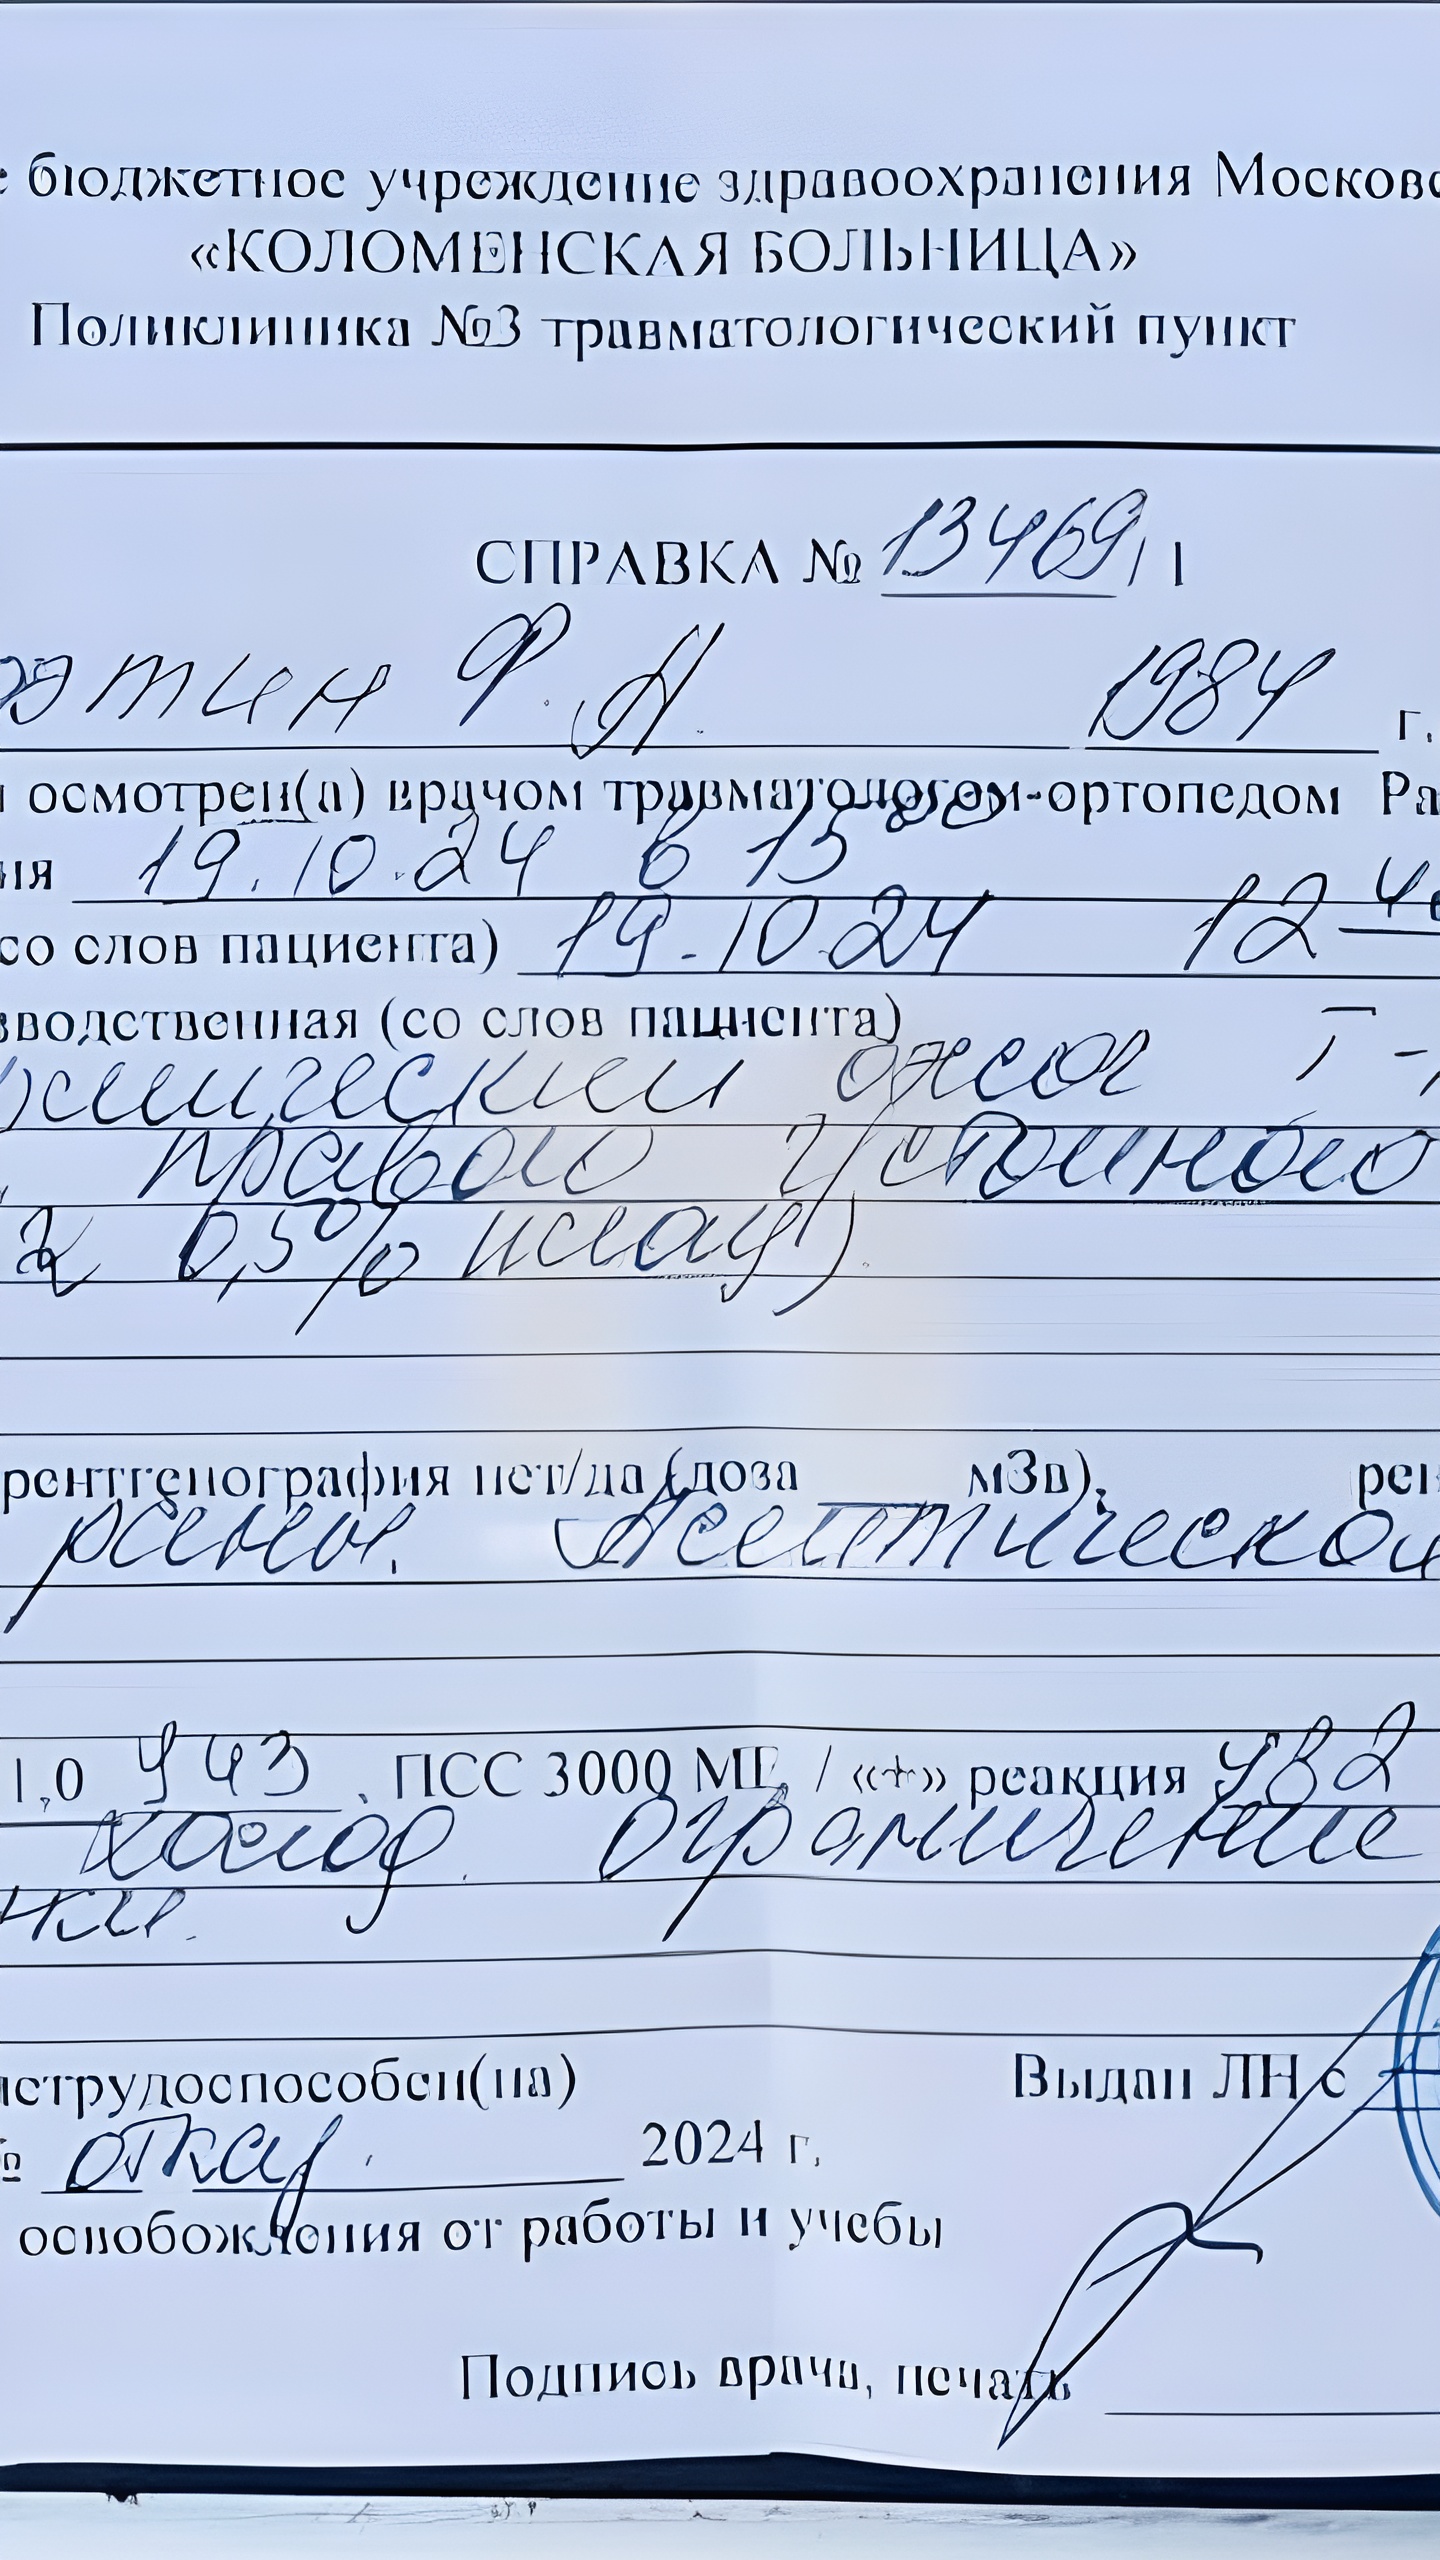 бюджетное учреждение здравоохранения Москов
«КОЛОМЕНСКАЯ БОЛЬНИЦА»
Поликлиника №3 травматологический пункт
СПРАВКА № 13469
Ф. А. 1984 г.
осмотрен(а) врачом травматологом-ортопедом Ра
ия 19.10.24 в 15
со слов пациента) 19.10.24 12
зводственная (со слов пациента)
ожог I -
правого
0,5%
рентгенография нет/да (доза мЗв), рен
раны. Асептической
1,0 У43, ПСС 3000 МЕ / «+» реакция
холод. Ограничение
нетрудоспособен(на) Выдан ЛН с
№ отказ. 2024 г.
освобождения от работы и учебы
Подпись врача, печать